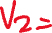 V₂=